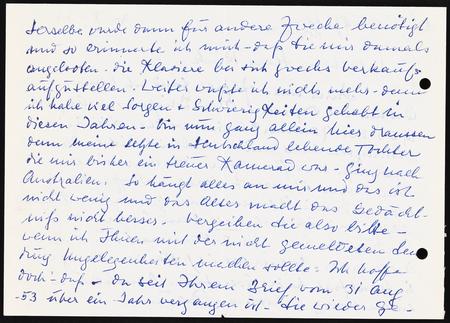 derselbe wurde dann für andere Zwecke benötigt
und so erinnerte ich mich - daß Sie mir damals
angeboten - die Klaviere bei sich zwecks Verkaufs
aufzustellen. Weiter wußte ich nichts mehr - denn
ich habe viel Sorgen + Schwierigkeiten gehabt in
diesen Jahren - bin nun ganz allein hier draussen
denn meine letzte in Deutschland lebende Tochter
die mir bisher ein treuer Kamerad war - ging nach
Australien. So hängt alles an mir und das ist
nicht wenig und das Alter macht das Gedächt-
niß nicht besser. Verzeihen Sie also bitte -
wenn ich Ihnen mit der nicht gemeldeten Sen
dung Ungelegenheiten machen sollte. Ich hoffe
doch - daß - da seit Ihrem Brief vom 31 Aug
-53 über ein Jahr vergangen ist - Sie wieder ge-